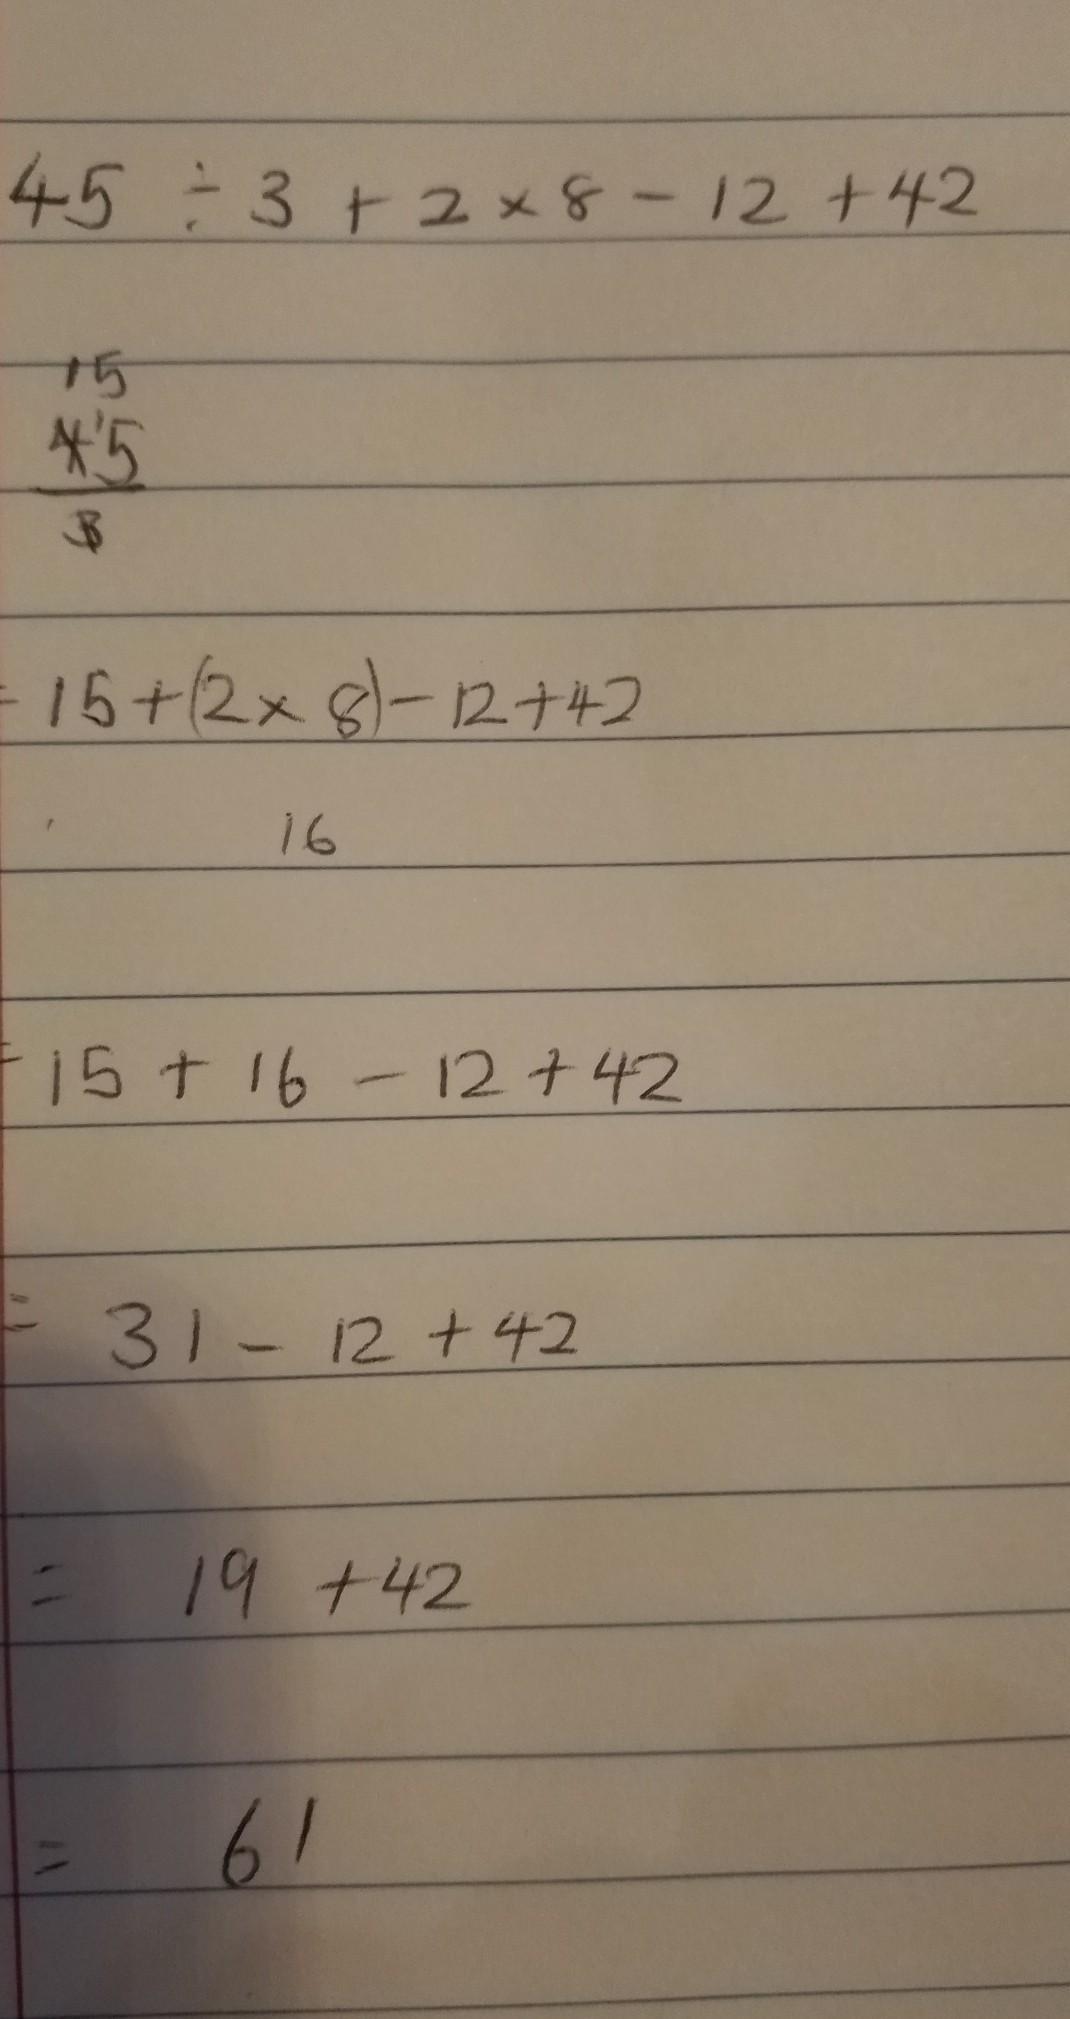 45 ÷ 3 + 2 × 8 - 12 + 42
15
4'5
3
= 15 + (2 × 8) - 12 + 42
16
= 15 + 16 - 12 + 42
= 31 - 12 + 42
= 19 + 42
= 61